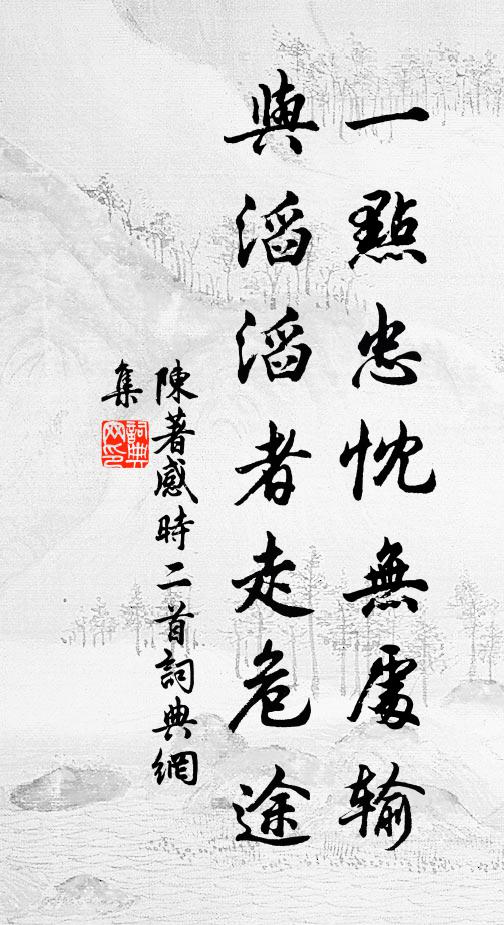 一點忠忱無處输
與滔滔者走危途
陳著感時二首詞典網
集
詞典
网印